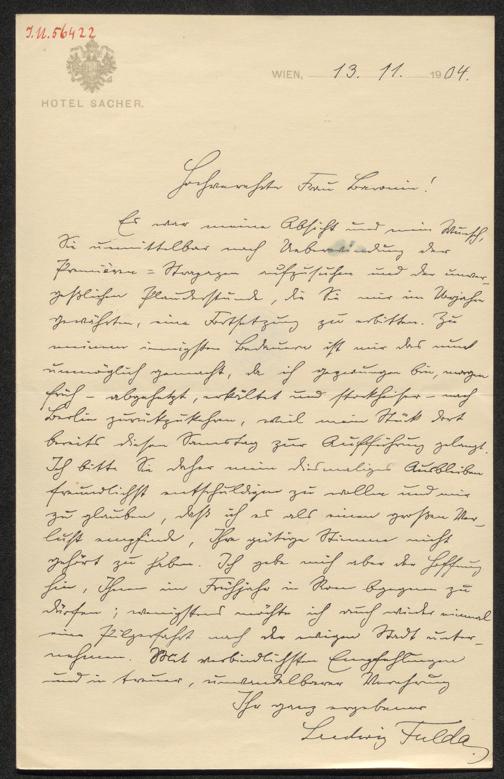 I.N. 56422
HOTEL SACHER.
WIEN, 13. 11. 1904.
Hochverehrte Frau Baronin!
Es war meine Absicht und mein Wunsch,
Sie unmittelbar nach Ueberwindung der
Premièren=Strapazen aufzusuchen und der unver-
geßlichen Plauderstunde, die Sie mir im Vorjahr
gewährten, eine Fortsetzung zu erbitten. Zu
meinem innigsten Bedauern ist mir das nun
unmöglich gemacht, da ich gezwungen bin, morgen
früh – abgehetzt, erkältet und stockheiser – nach
Berlin zurückzukehren, weil mein Stück dort
bereits diesen Samstag zur Aufführung gelangt.
Ich bitte Sie daher mein diesmaliges Ausbleiben
freundlichst entschuldigen zu wollen und mir
zu glauben, daß ich es als einen großen Ver-
lust empfinde, Ihre gütige Stimme nicht
gehört zu haben. Ich gebe mich aber der Hoffnung
hin, Ihnen im Frühjahr in Rom begegnen zu
dürfen; wenigstens möchte ich auch wieder einmal
eine Pilgerfahrt nach der ewigen Stadt unter-
nehmen. Mit verbindlichsten Empfehlungen
und in treuer, unwandelbarer Verehrung
Ihr ganz ergebener
Ludwig Fulda